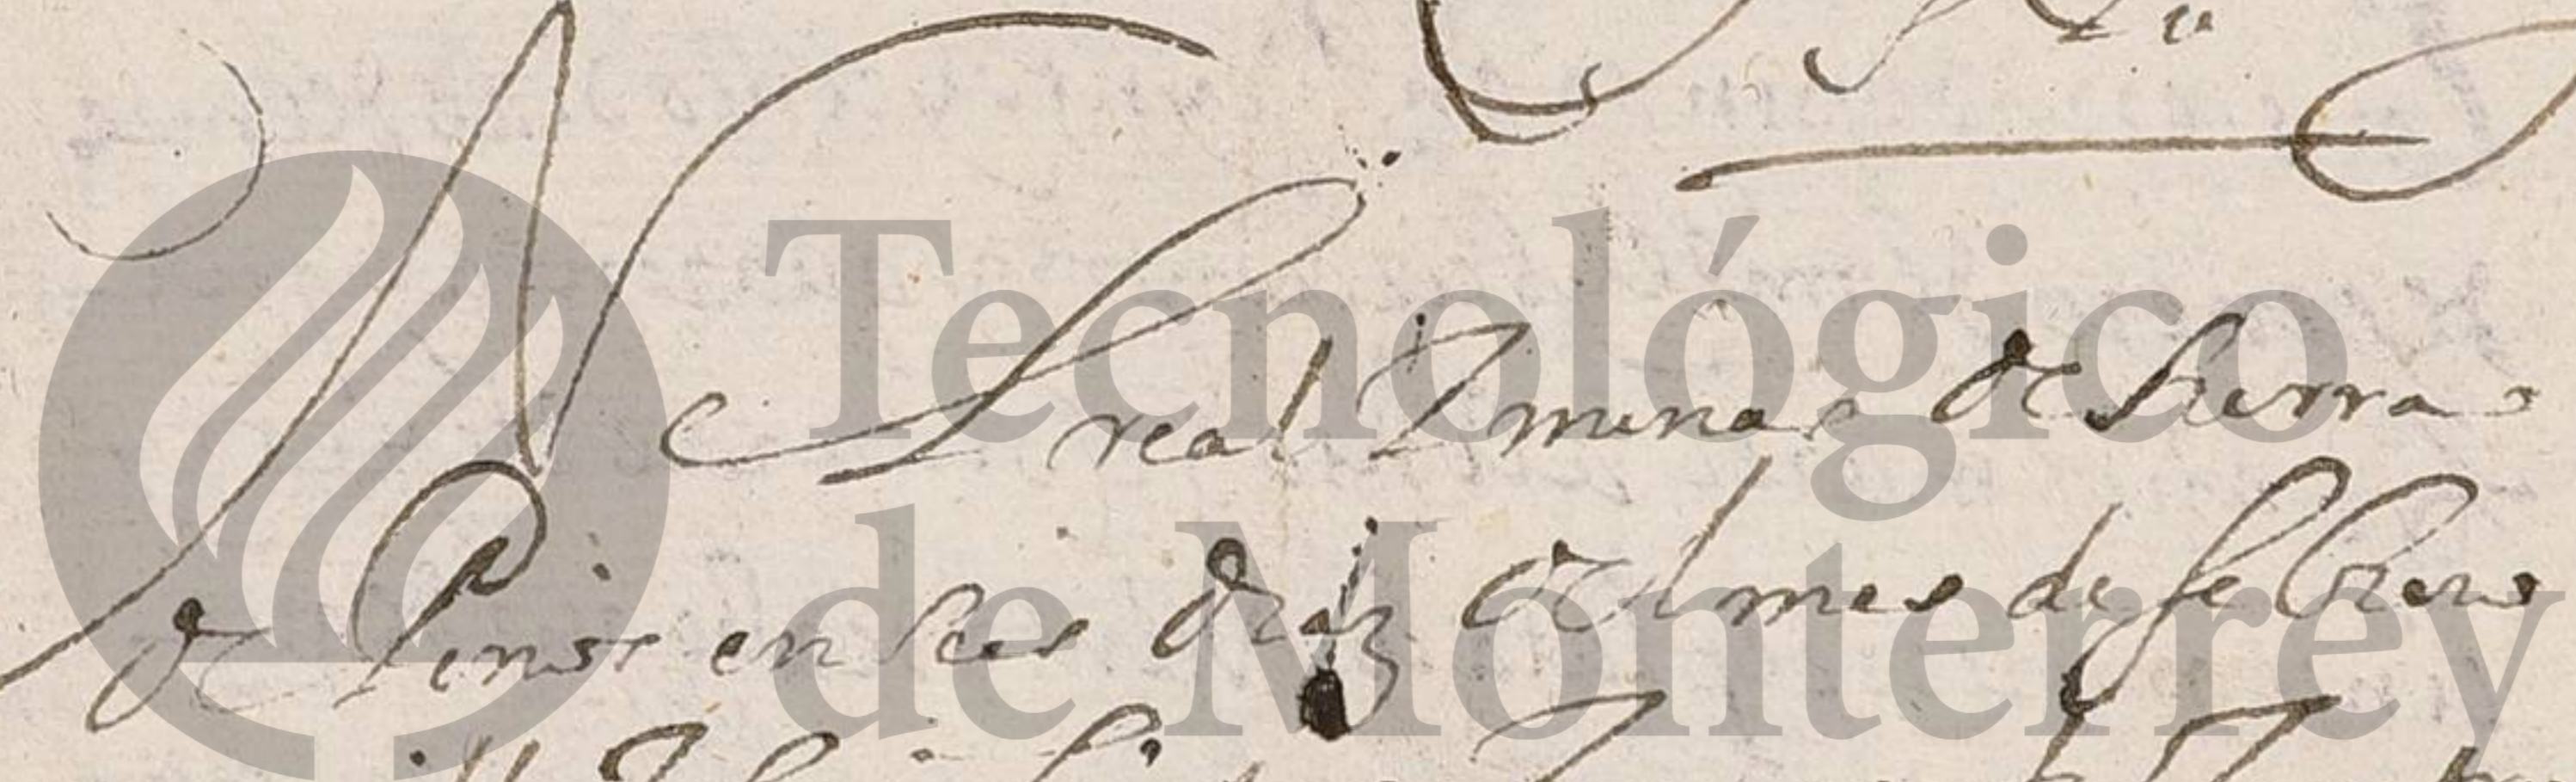 Tecnológico
de Monterrey
N el real I minas de Sierra
de Pinos en seis dias del mes de febrero